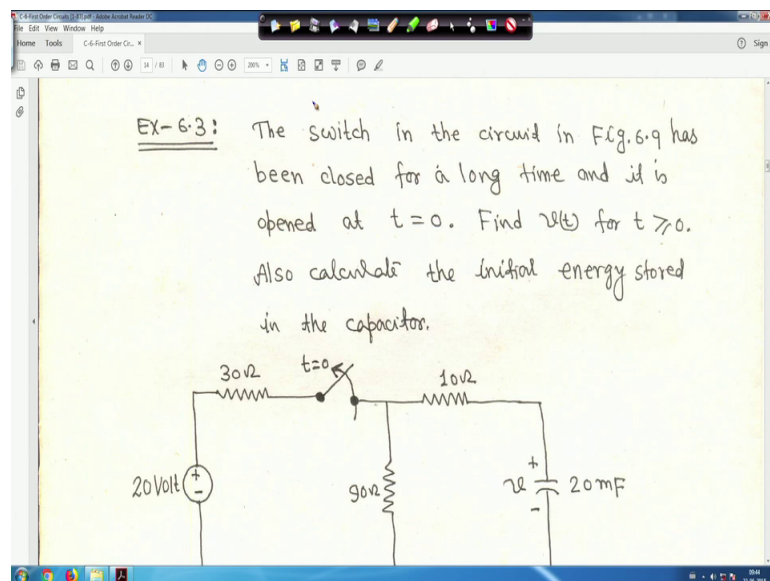 C-6-First Order Circuits [1-83].pdf - Adobe Acrobat Reader DC
File Edit View Window Help
Home Tools C-6-First Order Cir... × Sign
14 / 83 200%
EX-6.3: The switch in the circuit in Fig. 6.9 has
been closed for a long time and it is
opened at t=0. Find v(t) for t ⩾ 0.
Also calculate the initial energy stored
in the capacitor.
30Ω t=0 10Ω
20 Volt + - 90Ω v + - 20 mF
09:44